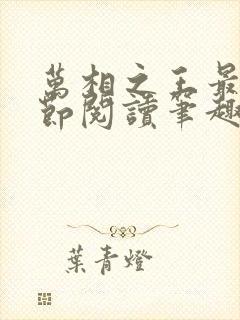 萬相之王最
節閱讀筆趣
葉青燈